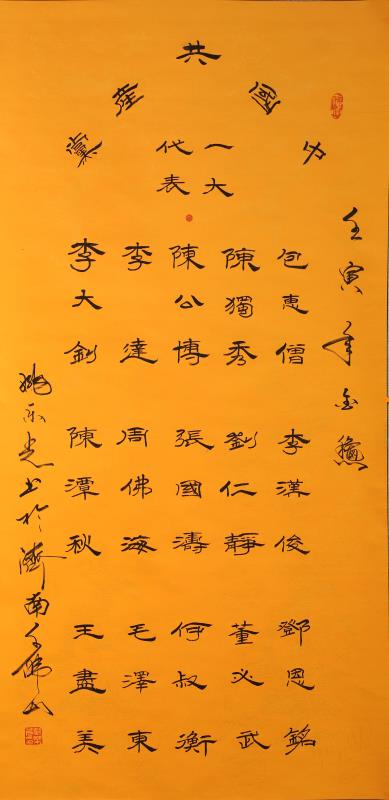 壬寅年金穐
中國共產黨
一大
代表
包惠僧 李漢俊 鄧恩銘
陳獨秀 劉仁靜 董必武
陳公博 張國濤 何叔衡
李達 周佛海 毛澤東
李大釗 陳潭秋 王盡美
姚乐光书於濟南千佛山